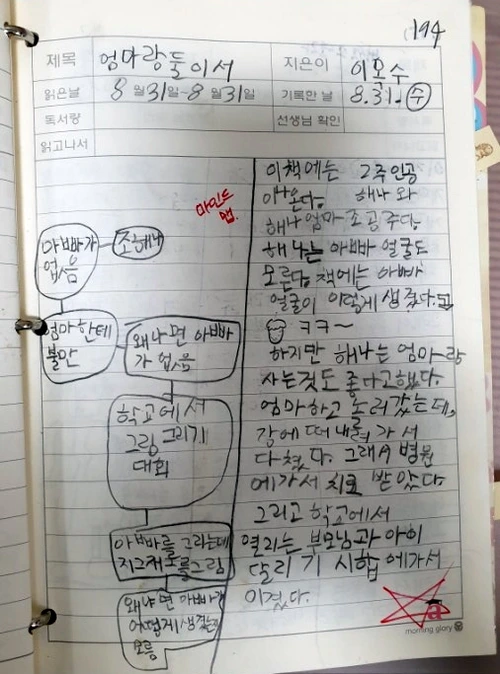 194
제목 엄마랑 둘이서 지은이 이목수
읽은날 8월 31일~8월 31일 기록한 날 8.31. 수
독서량 선생님 확인
읽고나서
마인드
맵
아빠가
없음
조해나
엄마한테
불만
왜냐면 아빠
가 없음
학교에서
그림 그리기
대회
아빠를 그리는데
지그재로를 그림
왜냐면 아빠가
어떻게 생겼는지
모름
이책에는 2주인공
이나온다. 해나 와
해나엄마 조공주다.
해나는 아빠 얼굴도
모른다. 책에는 아빠
얼굴이 이렇게 생겼다.
ㅋㅋ~
하지만 해나는 엄마랑
사는것도 좋다고했다.
엄마하고 놀러 갔는데,
강에 떠내려 가서
다쳤다. 그래서 병원
에가서 치료 받았다
그리고 학교에서
열리는 부모님과 아이
달리기 시합에가서
이겼다.
morning glory